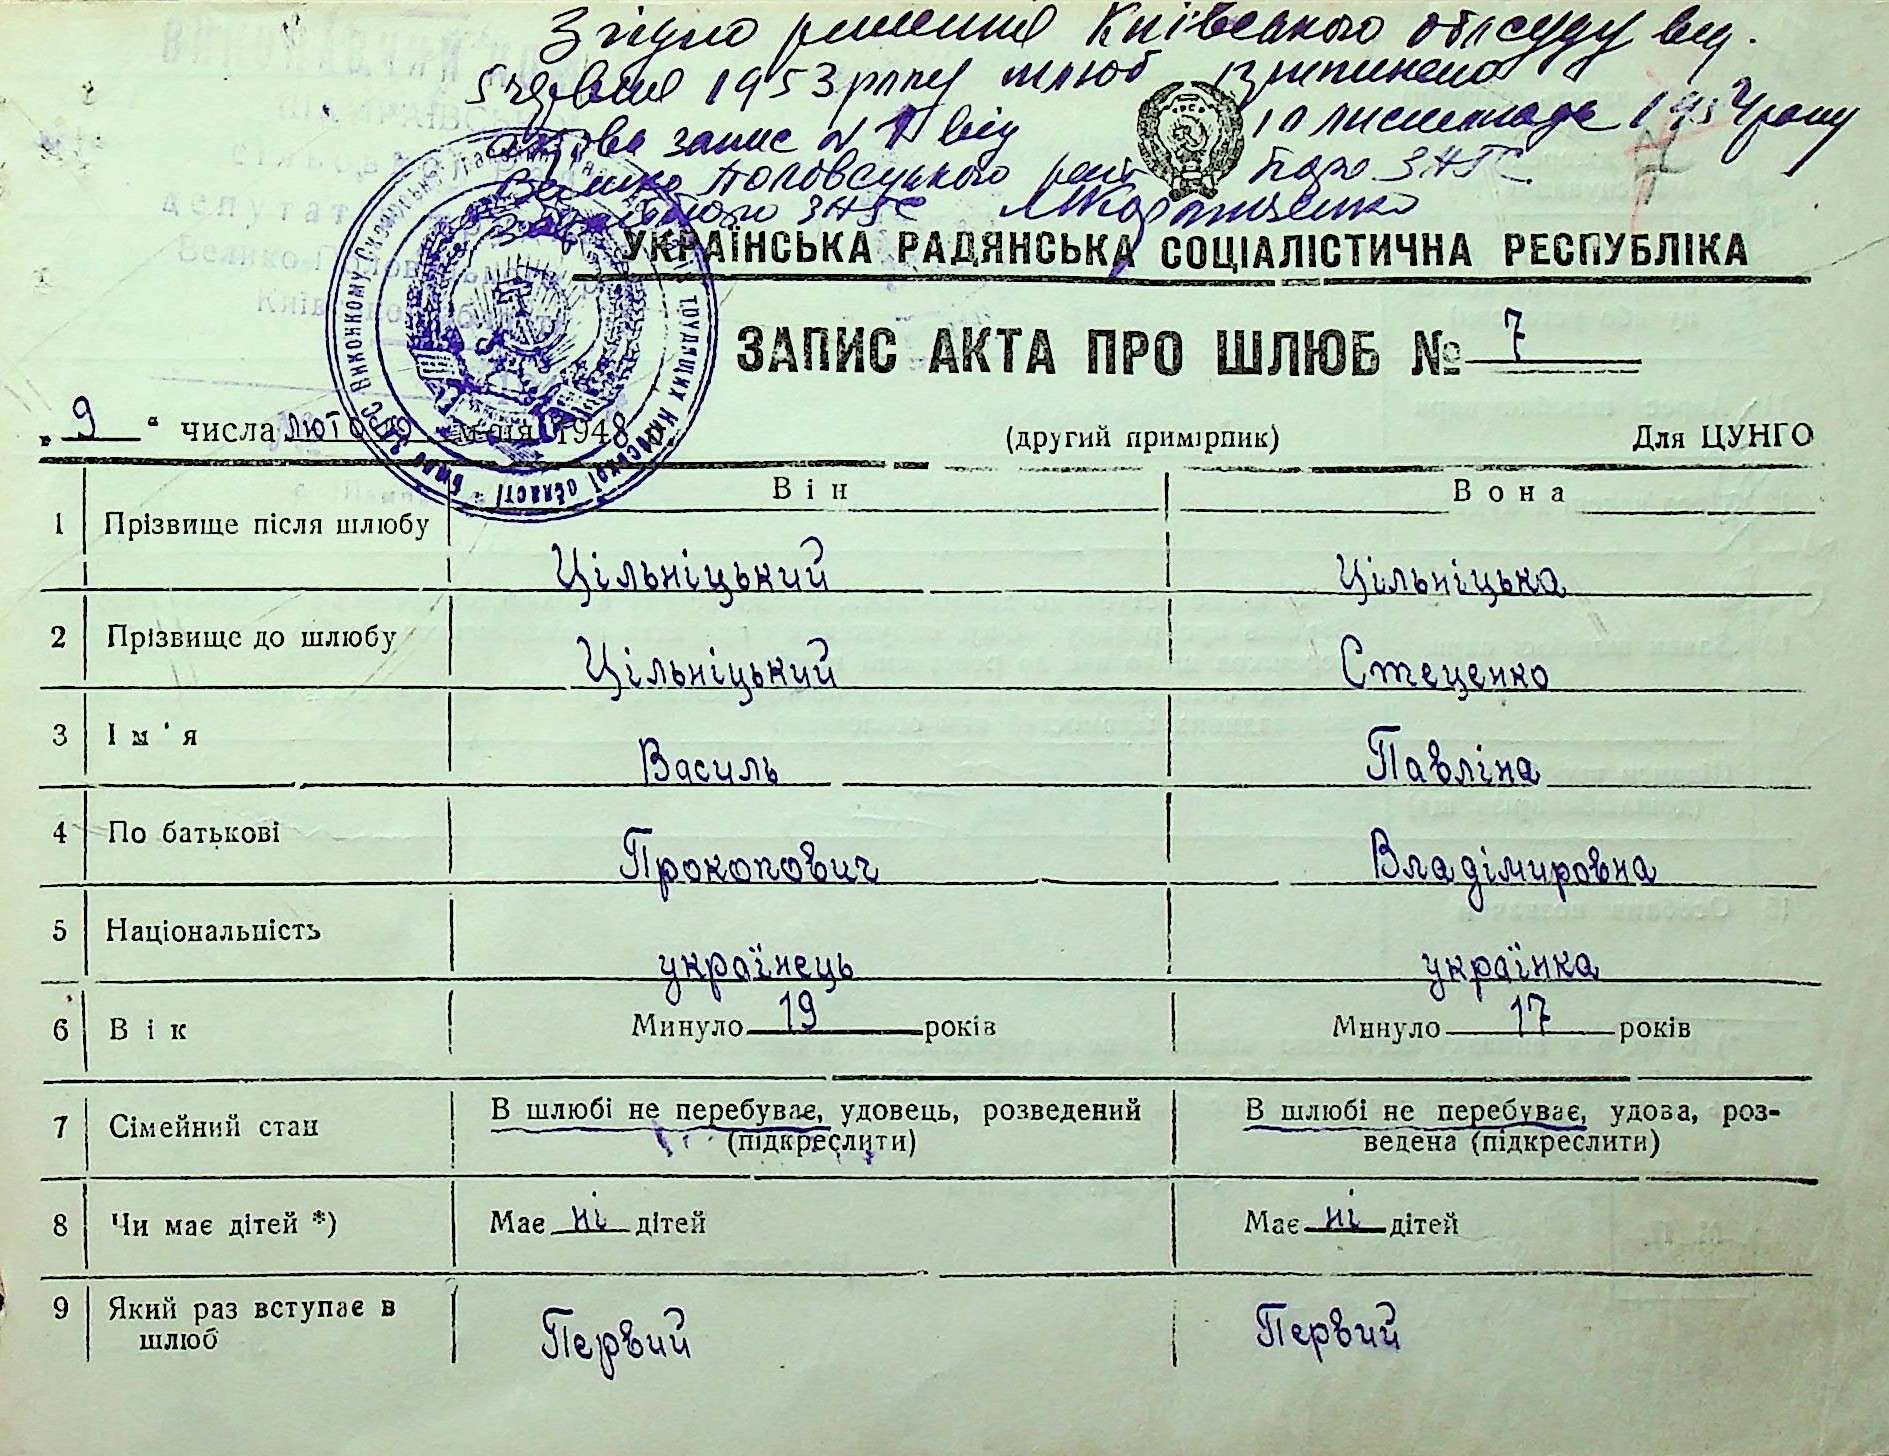 Згідно рішення Київського облсуду від.
5 червня 1953 року шлюб припинено
запис № 1 від 10 листопада 1954 року
Велико Половецького Бюро ЗАГС
ЗАГС
УКРАЇНСЬКА РАДЯНСЬКА СОЦІАЛІСТИЧНА РЕСПУБЛІКА
ЗАПИС АКТА ПРО ШЛЮБ № 7
„ 9 “ числа лютого м-ця 1948 р.
(другий примірник) Для ЦУНГО
Він Вона
1 Прізвище після шлюбу Цільніцький Цільніцька
2 Прізвище до шлюбу Цільніцький Стеценко
3 Ім'я Василь Павліна
4 По батькові Прокопович Владіміровна
5 Національність українець українка
6 Вік Минуло 19 років Минуло 17 років
7 Сімейний стан В шлюбі не перебуває, удовець, розведений (підкреслити) В шлюбі не перебуває, удова, роз-
ведена (підкреслити)
8 Чи має дітей *) Має ні дітей Має ні дітей
9 Який раз вступає в Первий Первий
шлюб